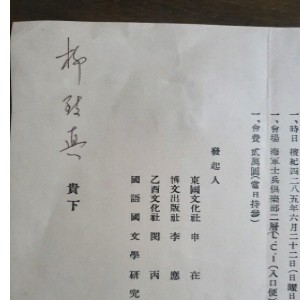 一、時日 檀紀四二八五年六月二十二日(日曜日
一、會場 海軍士兵俱樂部二層 T.C.I(入口便
一、會費 貳萬圓(當日持參)
發起人
東國文化社 申在
博文出版社 李應
乙酉文化社 閔丙
國語國文學硏究
柳致眞 貴下